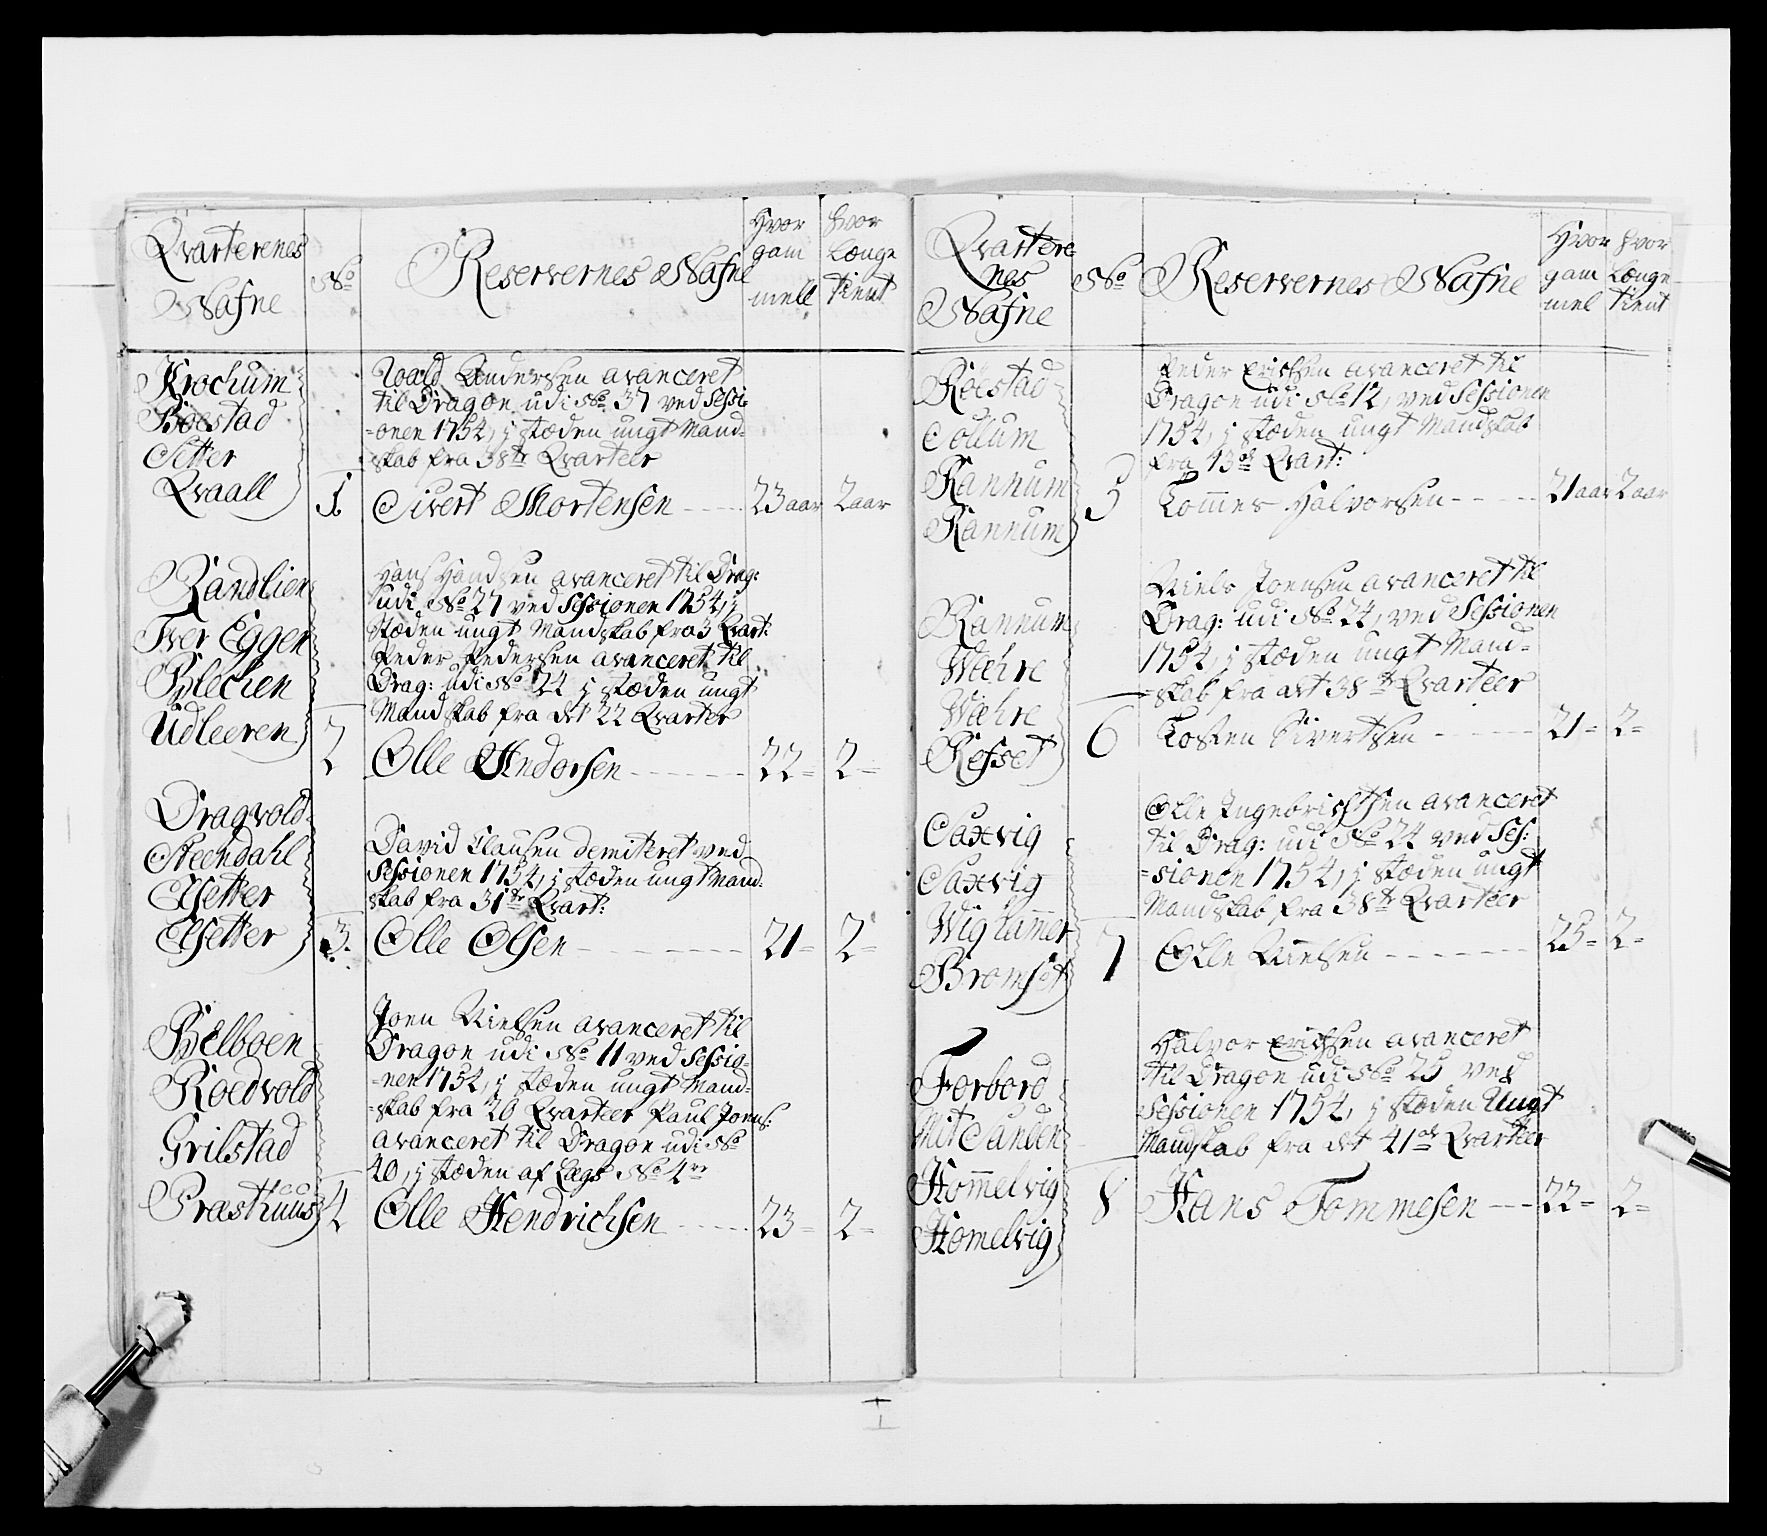 Qvarterenes
Nafne
No
Reservernes Nafne
Hvor
gam
mell
hvor
længe
tient
Krochum
Böestad
Setter
Qvaall
1
Woald Andersen avanceret
til Dragon udi No 37 ved Sessi
=onen 1754, i stæden ungt Mand=
skab fra 38te Qvarteer
Sivert Mortensen
23 aar
2 aar
Randlien
Iver Eggen
Blechen
Udleeren
2
Hans Handsen avanceret til Drag:
udi No 27 ved Sessionen 1754, i
stæden ungt Mandskab fra 3 Qvart:
Peder Pedersen avanceret til
Drag: udi No 22 i stæden ungt
Mandskab fra det 22 Qvarter
Olle Andorsen
22 =
2 =
Dragvold
Steendahl
Elsetter
Elsetter
3
David Clausen demiteret ved
Sessionen 1754, i stæden ungt Mand=
skab fra 31te Qvart:
Olle Olsen
21 =
2 =
Belboen
Roedvold
Grilstad
Prasthuus
4
Joen Nielsen avanceret til
Dragon udi No 11 ved Sessio=
=nen 1754, i stæden ungt Mand=
=skab fra 20 Qvarteer Paul Joens:
avanceret til Dragon udi No
40, i stæden af Lægs No 4re
Olle Hendrichsen
23 =
2 =
Qvartere
nes
Nafne
No
Reservernes Nafne
Hvor
gam
mel
hvor
længe
tient
Röestad
Sollum
Rannum
Rannum
5
Peder Erichsen avanceret til
Dragon udi No 12, ved Sessionen
1754, i stæden ungt Mandskab
fra 43de Qvart:
Tommes Halvorsen
21 aar
2 aar
Rannum
Wæhre
Wæhre
Refset
6
Niels Joensen avanceret til
Drag: udi No 24, ved Sessionen
1754, i stæden ungt Mand=
=skab fra det 38te Qvarteer
Tosten Sivertsen
21 =
2 =
Saxvig
Saxvig
Wighammer
Bromset
7
Olle Ingebrichtsen avanceret
til Drag: udi No 24 ved Ses:
=sionen 1754, i stæden ungt
Mandskab fra 38te Qvarteer
Olle Nielsen
25 =
2 =
Forbord
Mit Sanden
Hommelvig
Homelvig
8
Halvor Erichsen avanceret
til Dragon udi No 25 ved
Sessionen 1754, i stæden Ungt
Mandskab fra det 41de Qvarteer
Hans Tommesen
22 =
2 =